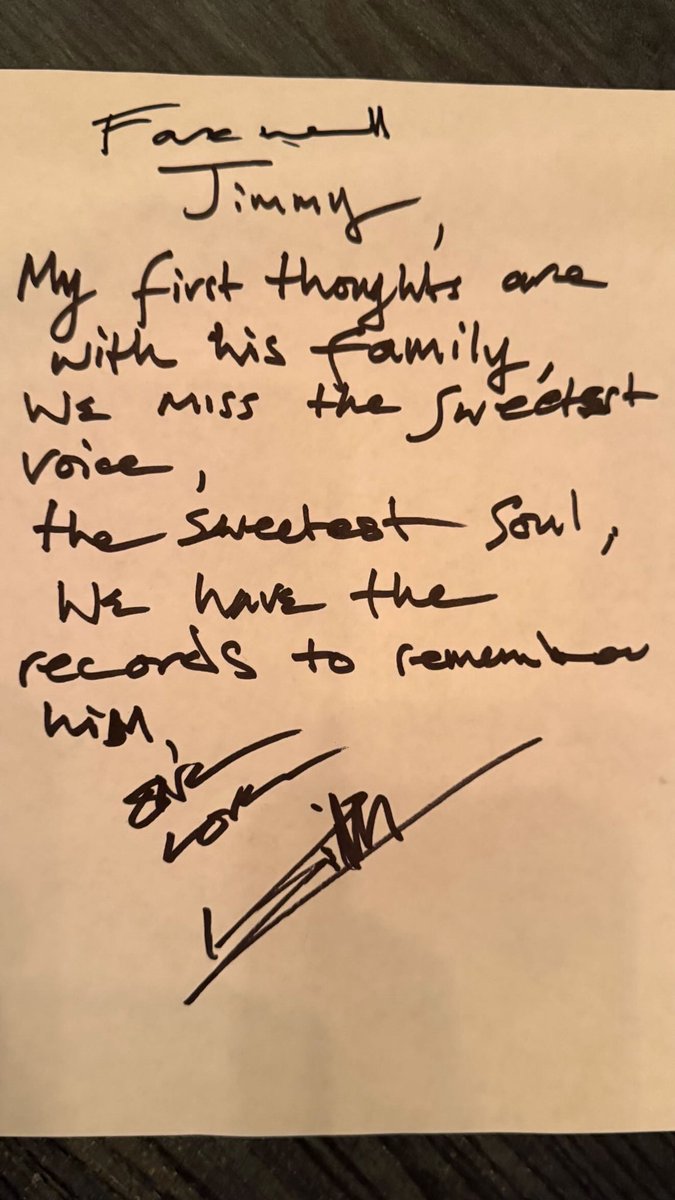 Farewell
Jimmy,
My first thoughts are
with his family,
We miss the sweetest
voice,
the sweetest soul,
We have the
records to remember
him,
One
Love